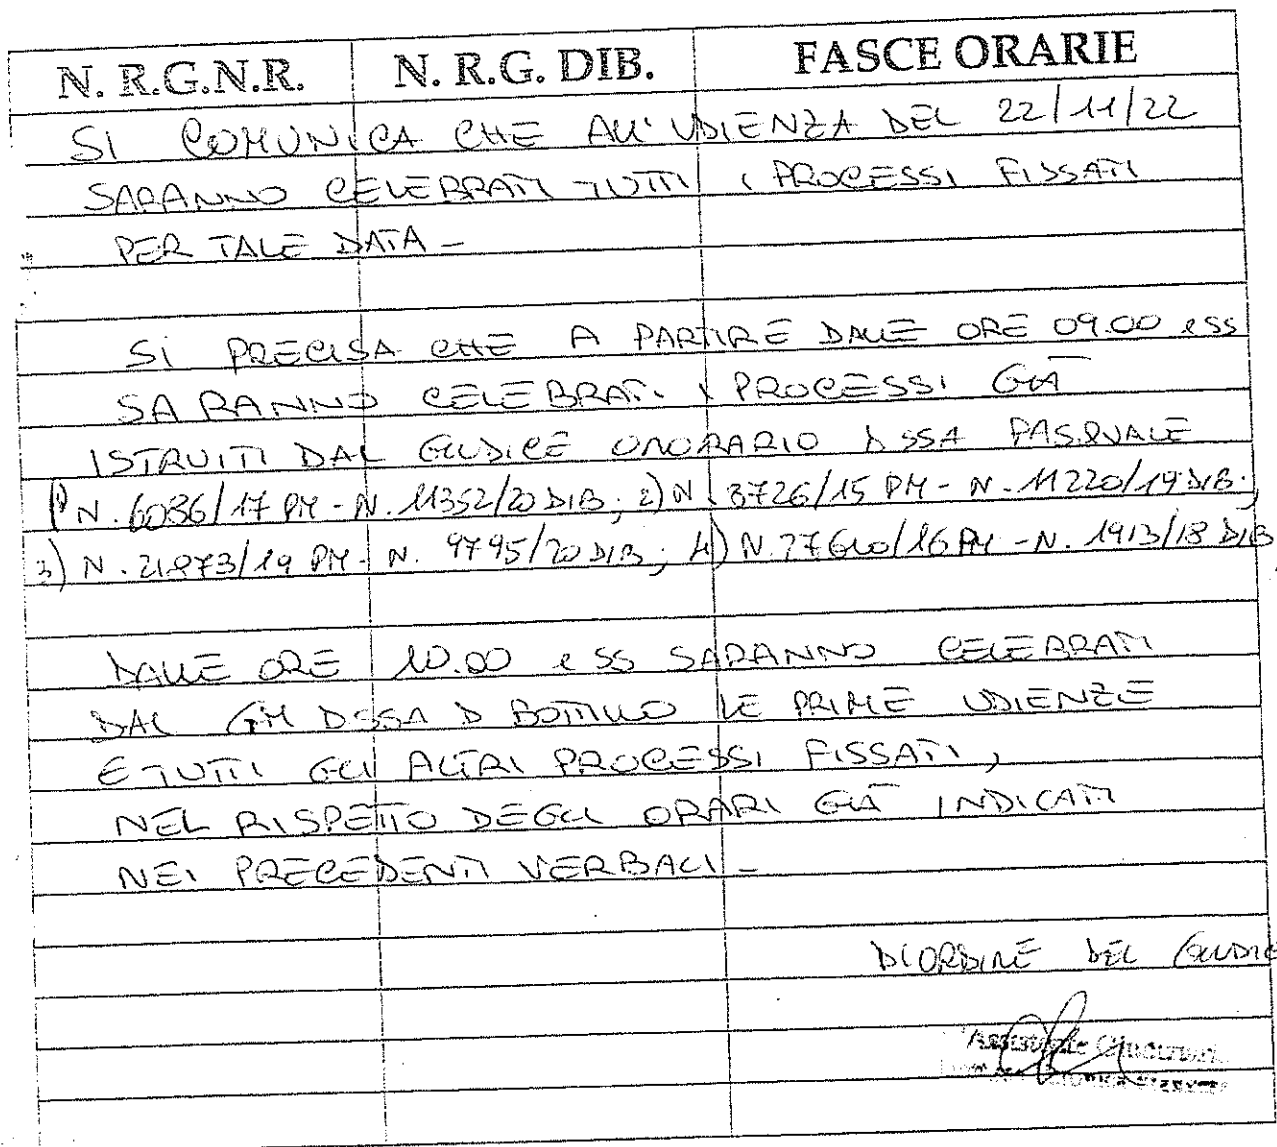 N. R.G.N.R. N. R.G. DIB. FASCE ORARIE
SI COMUNICA CHE ALL'UDIENZA DEL 22/11/22
SARANNO CELEBRATI TUTTI I PROCESSI FISSATI
PER TALE DATA -
SI PRECISA CHE A PARTIRE DALLE ORE 09.00 e SS
SARANNO CELEBRATI I PROCESSI GIÀ
ISTRUITI DAL GIUDICE ONORARIO DSSA PASQUALE
1) N. 6086/17 PM - N. 11352/20 DIB; 2) N. 3726/15 PM - N. 11220/19 DIB;
3) N. 21873/19 PM - N. 9795/20 DIB; 4) N. 27610/16 PM - N. 1913/18 DIB
DALLE ORE 10.00 e SS SARANNO CELEBRATI
DAL GM DSSA D BOTTILLO LE PRIME UDIENZE
E TUTTI GLI ALTRI PROCESSI FISSATI,
NEL RISPETTO DEGLI ORARI GIÀ INDICATI
NEI PRECEDENTI VERBALI -
DI ORDINE DEL GIUDICE
Assistente Giudiziario